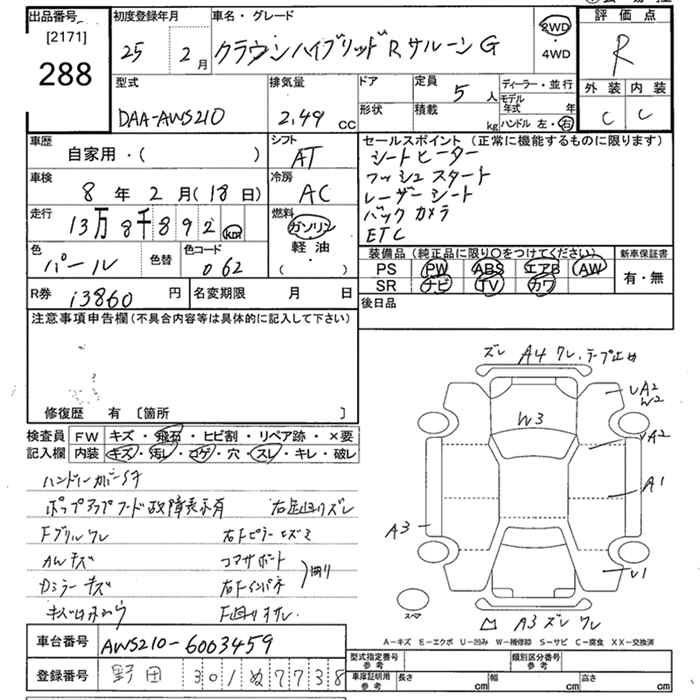 出品番号
[2171]
288
初度登録年月
25 2月
車名・グレード
クラウンハイブリッドRサルーンG
2WD
・
4WD
評価点
R
外装 内装
C C
型式
DAA-AWS210
排気量
2.49 CC
ドア
形状
定員 5人
積載 kg
ディーラー・並行
モデル年式 年
ハンドル 左・右
車歴
自家用・( )
シフト
AT
車検
8年2月(18日)
冷房
AC
走行
13万8千892km
燃料
ガソリン
軽油・
( )
色
パール
色替
色コード
062
R券 13860円
名変期限 月 日
セールスポイント(正常に機能するものに限ります)
シートヒーター
プッシュスタート
レーザーシート
バックカメラ
ETC
装備品(純正品に限り○をつけてください)
PS PW ABS エアB AW
SR ナビ TV カワ
新車保証書
有・無
後日品
注意事項申告欄(不具合内容等は具体的に記入して下さい)
修復歴 有 [箇所 ]
検査員記入欄
FW キズ・飛石・ヒビ割・リペア跡・×要
内装 キズ・汚レ・コゲ・穴・スレ・キレ・破レ
ポップアップフード故障表示有
Fグリルワレ
AWキズ
Dミラーキズ
コマサポート
車台番号
AWS210-6003459
登録番号
野田 301ぬ7738
ズレ A4 ワレ テープ止め
UA2
W2
W3
A2
A1
A3
U1
スペア
A3 ズレ ワレ
A-キズ E-エクボ U-凹み W-補修跡 S-サビ C-腐食 XX-交換済
型式指定番号
参考
類別区分番号
参考
車庫証明用
参考
長さ cm 幅 cm 高さ cm